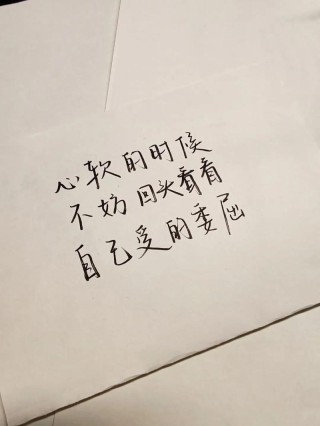 心软的时候
不妨回头看看
自己受的委屈